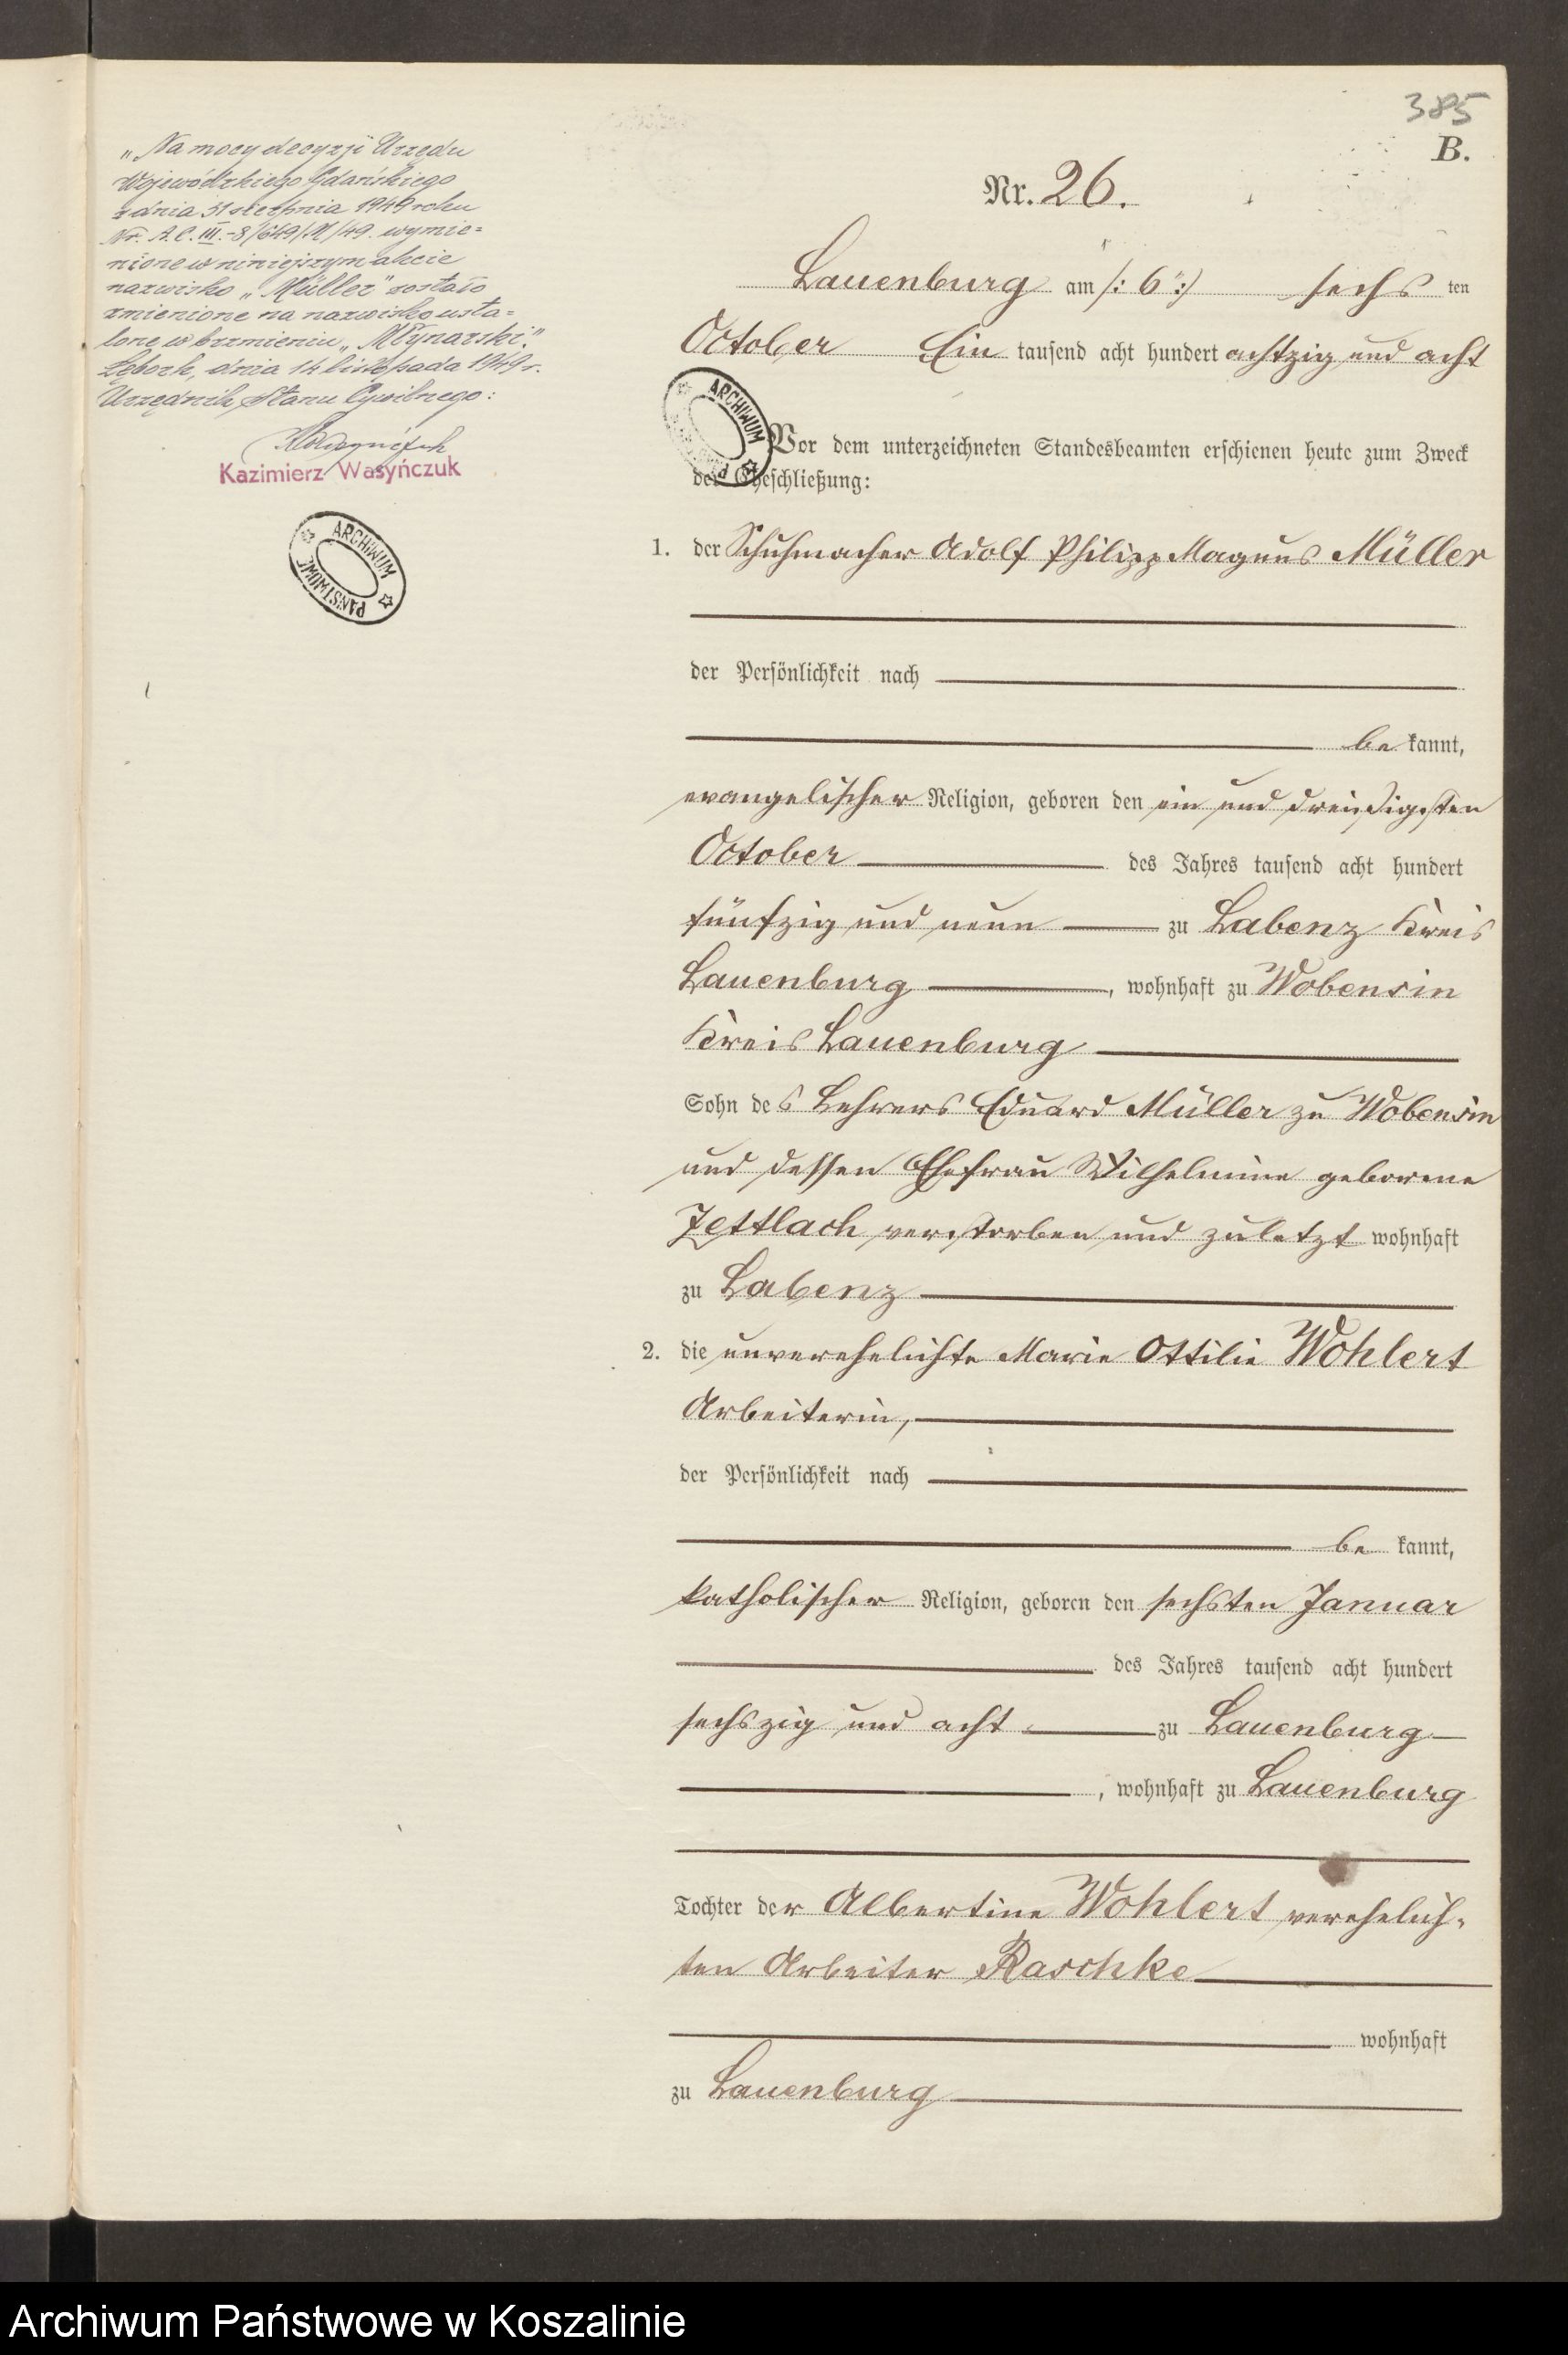 385
B.
„Na mocy decyzji Urzędu
Wojewódzkiego Gdańskiego
z dnia 31 sierpnia 1949 roku
Nr. A.C. III.-8/649/M/49. wymie=
nione w niniejszym akcie
nazwisko „Müller" zostało
zmienione na nazwisko usta=
lone w brzmieniu „Młynarski."
Lębork, dnia 14 listopada 1949 r.
Urzędnik Stanu Cywilnego:
Kazimierz Wasyńczuk
ARCHIWUM PAŃSTWOWE
Nr. 26.
Lauenburg am /: 6 :/ sechs ten
October Ein tausend acht hundert achtzig und acht
ARCHIWUM
Vor dem unterzeichneten Standesbeamten erschienen heute zum Zweck
der Eheschließung:
1. der Schuhmacher Adolf Philipp Magnus Müller
der Persönlichkeit nach
be kannt,
evangelischer Religion, geboren den ein und dreißigsten
October des Jahres tausend acht hundert
fünfzig und neun zu Labenz Kreis
Lauenburg, wohnhaft zu Wobensin
Kreis Lauenburg
Sohn des Lehrers Eduard Müller zu Wobensin
und dessen Ehefrau Wilhelmine geborene
Zettlach verstorben und zuletzt wohnhaft
zu Labenz
2. die unverehelichte Marie Ottilie Wohlert
Arbeiterin,
der Persönlichkeit nach
be kannt,
katholischer Religion, geboren den sechsten Januar
des Jahres tausend acht hundert
sechszig und acht zu Lauenburg
, wohnhaft zu Lauenburg
Tochter der Albertine Wohlert verehelich=
ten Arbeiter Raschke
wohnhaft
zu Lauenburg
Archiwum Państwowe w Koszalinie